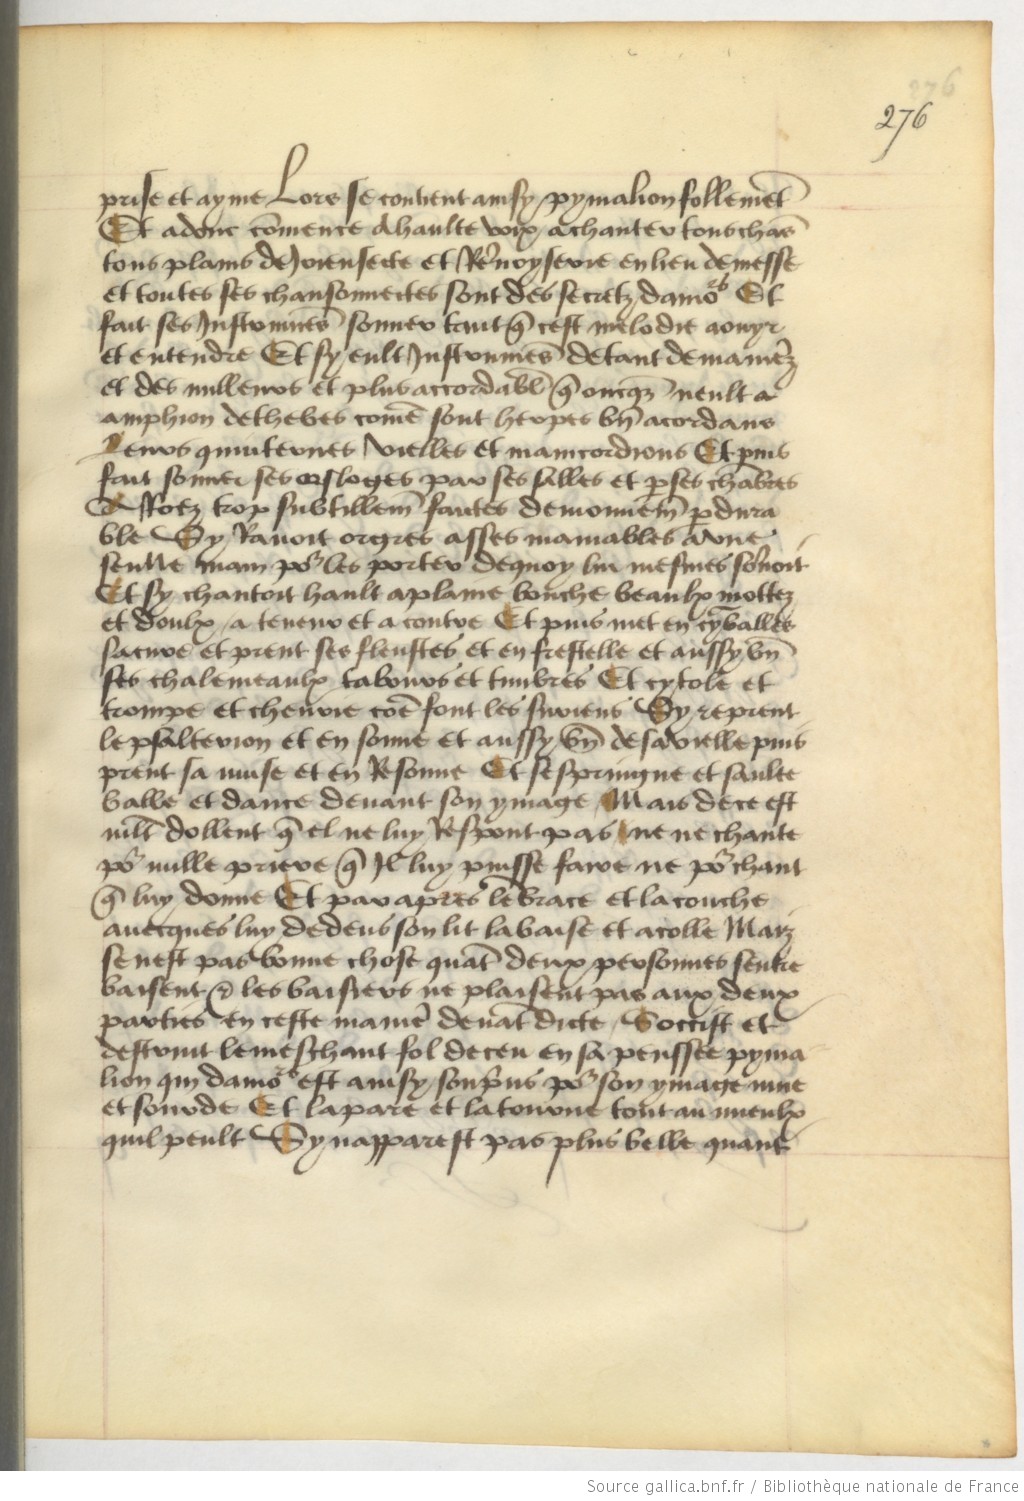 276
276
prise et ayme Lors se contient ainsy pymalion follemēt
Et adonc cōmence a haulte voix a chanter tous chās
tous plains de et en lieu de messe
et toutes ses chansonnectes sont des secretz damor̄s Et
fait ses Instrumēs sonner tant q̄ cest melodie a ouyr
et entendre Et sy eult Instrumēs de tant de manier̄z
et des milleurs et plus accordabl̄ q̄ oncqz neult a
amphion de thebes comē sont herpes bn̄ acordans
leurs quiternes vielles et manicordions Et puis
fait sonner ses orloges par ses salles et p ses chābres
A Roez trop subtillem̄ faictes de mouuem̄ pdura
ble Sy Ravoit orgres asses maniables a vne
seulle main por les porter de quoy lui mesmes
Et sy chantoit hault a plaine bouche beaulx mottez
et doulx a teneur et a contre Et puis met en cyballes
sa cure et prent ses fleustes et en frestelle et aussy bn̄
ses chalemeaulx tabours et timbres Et cytole et
trompe et chevrie coē font les suriens Sy reprent
le psalterion et en sonne et aussy bn̄ de sa vielle puis
prent sa muse et en Resonne Et sespringue et saulte
balle et dance devant son ymage Mais de ce est
mlt̄ dollent q̄ el ne luy Respont pas ne ne chante
por nulle priere q̄ Il luy puisse faire ne por chant
q̄ luy donne Et par apres lebrace et la couche
auecques luy dedens son lit la baise et acolle Maiz
se nest pas bonne chose quāt deux personnes sentre
baisent & les baisiers ne plaisent pas aux deux
parties en ceste manier̄ deuāt dicte Soccist et
destruit le meschant fol deceu en sa penssee pyma
lion qui damor̄s est ainsy sourp̄ns por son ymage mue
et sourde Et la pare et la tourne tout au mieulx
quil peult Sy napparest pas plus belle quant
Source gallica.bnf.fr / Bibliothèque nationale de France